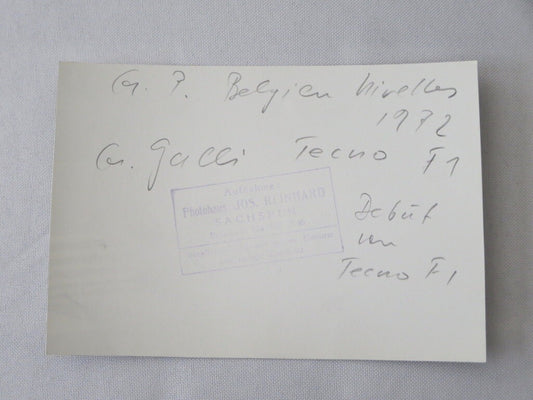 G. P. Belgien Nivelles
1972
G. Galli Tecno F1
Aufnahme:
Photohaus JOS. REINHARD
SACHSELN
Debüt
von
Tecno F1